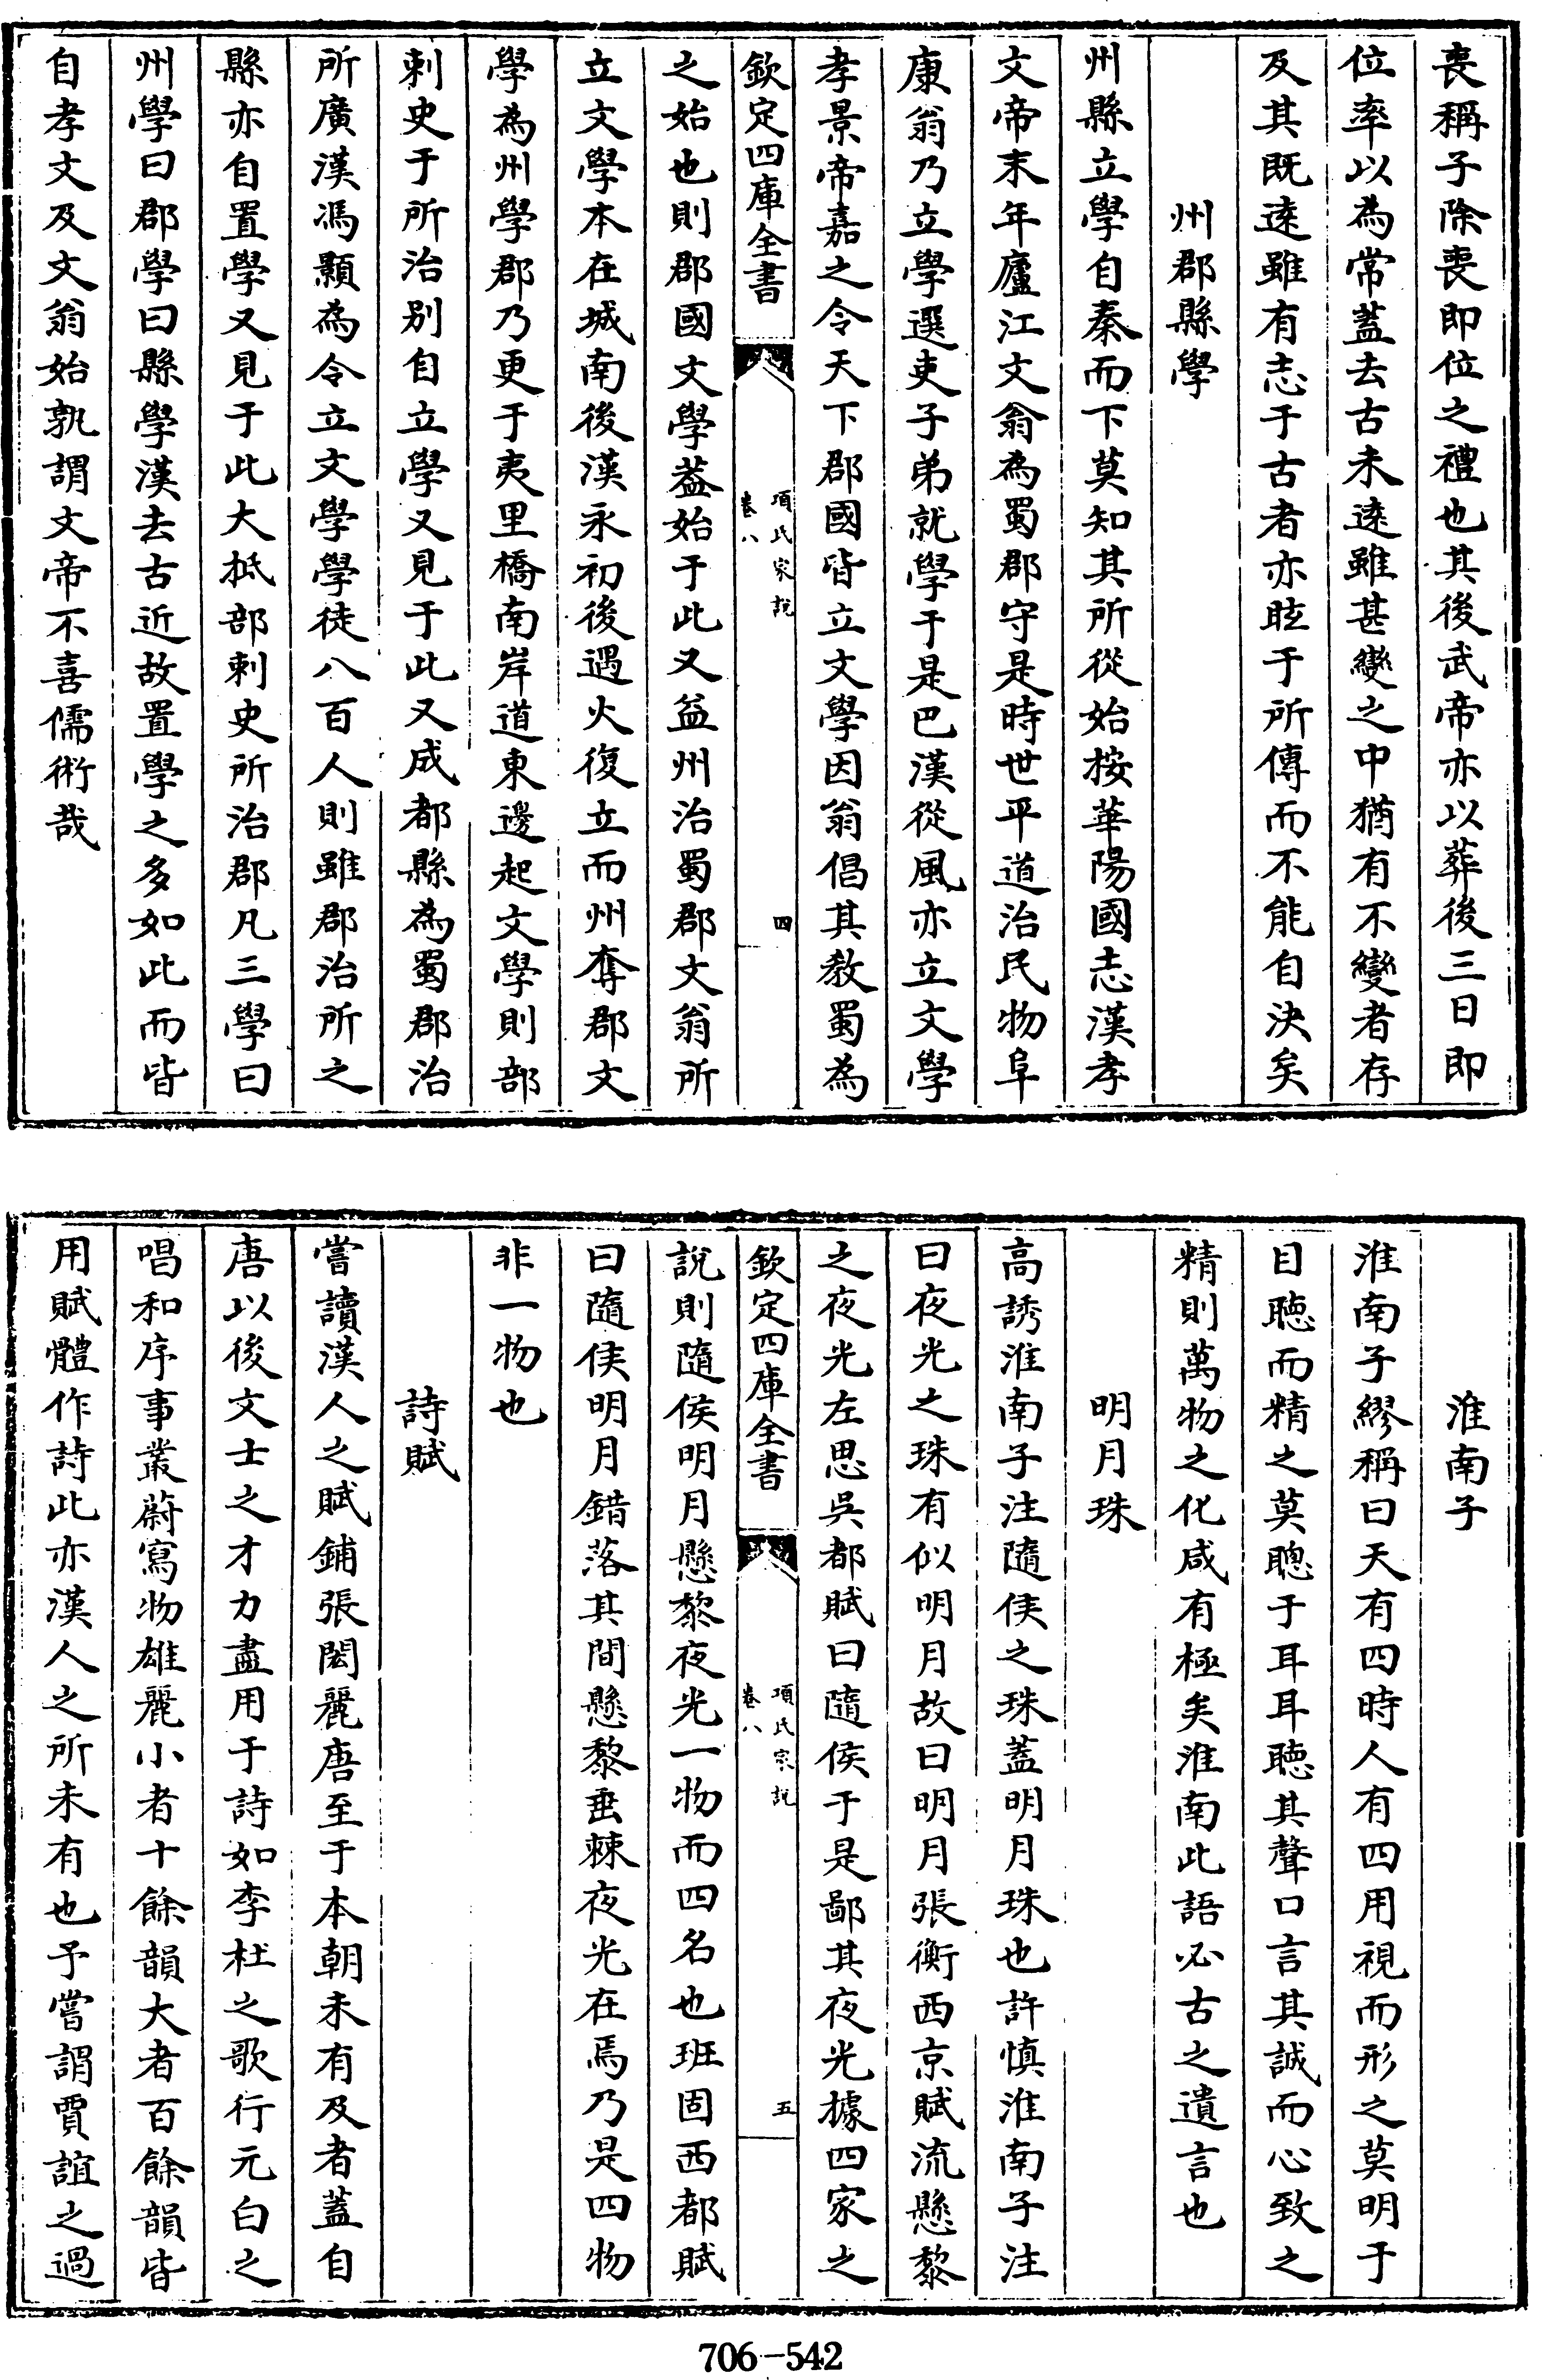 喪稱子除喪即位之禮也其後武帝亦以葬後三日即
位率以為常蓋去古未逺雖甚變之中猶有不變者存
及其既逺雖有志于古者亦眩于所傳而不能自決矣
州郡縣學
州縣立學自秦而下莫知其所從始按華陽國志漢孝
文帝末年廬江文翁為蜀郡守是時世平道治民物阜
康翁乃立學選吏子弟就學于是巴漢從風亦立文學
孝景帝嘉之令天下郡國皆立文學因翁倡其教蜀為
欽定四庫全書
項氏家說
卷八
四
之始也則郡國文學葢始于此又益州治蜀郡文翁所
立文學本在城南後漢永初後遇火復立而州奪郡文
學為州學郡乃更于夷里橋南岸道東邊起文學則部
刺史于所治别自立學又見于此又成都縣為蜀郡治
所廣漢馮顥為令立文學學徒八百人則雖郡治所之
縣亦自置學又見于此大抵部刺史所治郡凡三學曰
州學曰郡學曰縣學漢去古近故置學之多如此而皆
自孝文及文翁始孰謂文帝不喜儒術哉
淮南子
淮南子繆稱曰天有四時人有四用視而形之莫明于
目聽而精之莫聰于耳耳聽其聲口言其誠而心致之
精則萬物之化咸有極矣淮南此語必古之遺言也
明月珠
高誘淮南子注隨侯之珠蓋明月珠也許慎淮南子注
曰夜光之珠有似明月故曰明月張衡西京賦流懸黎
之夜光左思吳都賦曰隨侯于是鄙其夜光據四家之
欽定四庫全書
項氏家說
卷八
五
說則隨侯明月懸黎夜光一物而四名也班固西都賦
曰隨侯明月錯落其間懸黎垂棘夜光在焉乃是四物
非一物也
詩賦
嘗讀漢人之賦鋪張閎麗唐至于本朝未有及者蓋自
唐以後文士之才力盡用于詩如李杜之歌行元白之
唱和序事叢蔚寫物雄麗小者十餘韻大者百餘韻皆
用賦體作詩此亦漢人之所未有也予嘗謂賈誼之過
706-542